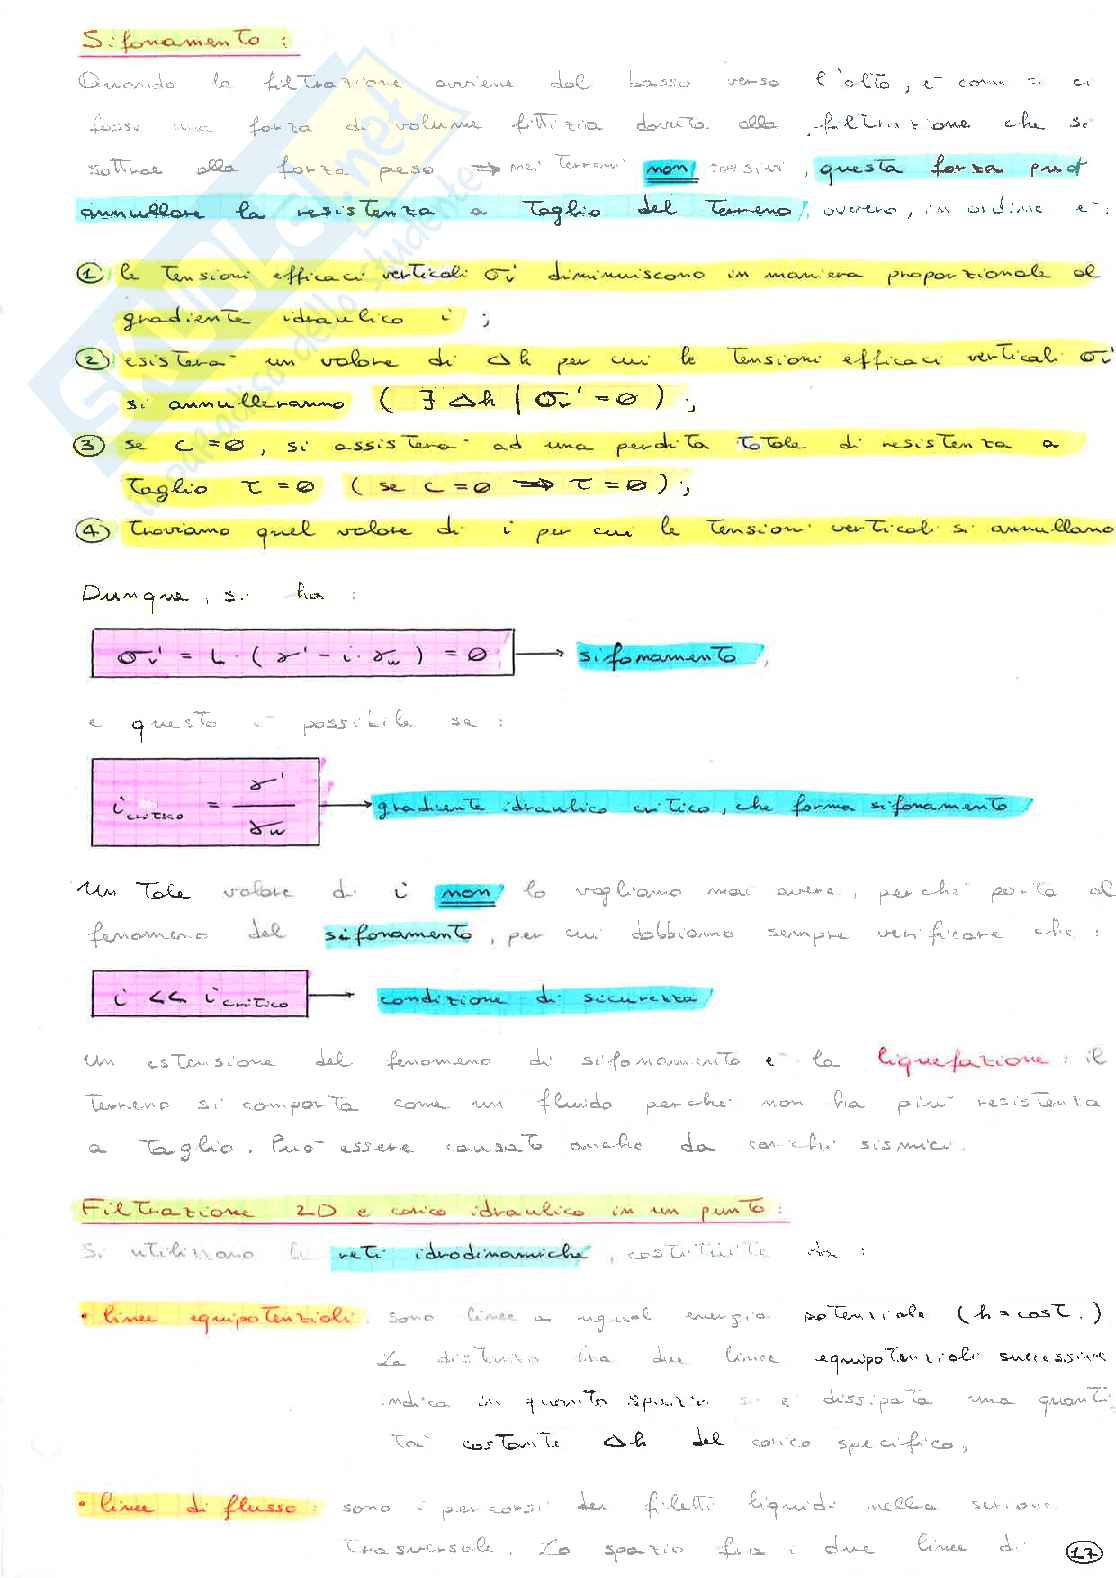 Sifonamento:
Quando la filtrazione avviene dal basso verso l'alto, è come se ci
fosse una forza di volume fittizia dovuta alla filtrazione che si
sottrae alla forza peso ⇒ nei terreni non coesivi, questa forza può
annullare la resistenza a taglio del terreno, ovvero, in ordine e:
① le tensioni efficaci verticali σv' diminuiscono in maniera proporzionale al
gradiente idraulico i;
② esisterà un valore di Δh per cui le tensioni efficaci verticali σv'
si annulleranno (∃ Δh | σv' = 0);
③ se c=0, si assisterà ad una perdita totale di resistenza a
taglio τ=0 (se c=0 ⇒ τ=0);
④ troviamo quel valore di i per cui le tensioni verticali si annullano
Dunque, si ha:
σv' = L · (γ' - i · γw) = 0 → sifonamento,
e questo è possibile se:
i critico = γ' / γw → gradiente idraulico critico, che forma sifonamento
Un tale valore di i non lo vogliamo mai avere, perché porta al
fenomeno del sifonamento, per cui dobbiamo sempre verificare che:
i << i critico → condizione di sicurezza
Un estensione del fenomeno di sifonamento è la liquefazione: il
terreno si comporta come un fluido perché non ha più resistenza
a taglio. Può essere causato anche da carichi sismici.
Filtrazione 2D e carico idraulico in un punto:
Si utilizzano le reti idrodinamiche, costituite da:
• linee equipotenziali: sono linee a ugual energia potenziale (h=cost.)
La distanza fra due linee equipotenziali successive
indica in quanto spazio si è dissipata una quanti
tà costante Δh del carico specifico;
• linee di flusso: sono i percorsi dei filetti liquidi nella sezione
trasversale. Lo spazio fra i due linee di
17
SKUOLA.net
il paradiso dello studente